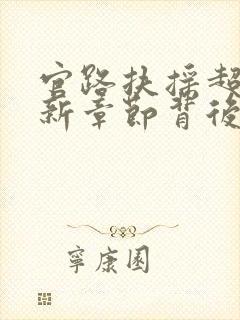 官路扶摇超
新章節背後
寧康園